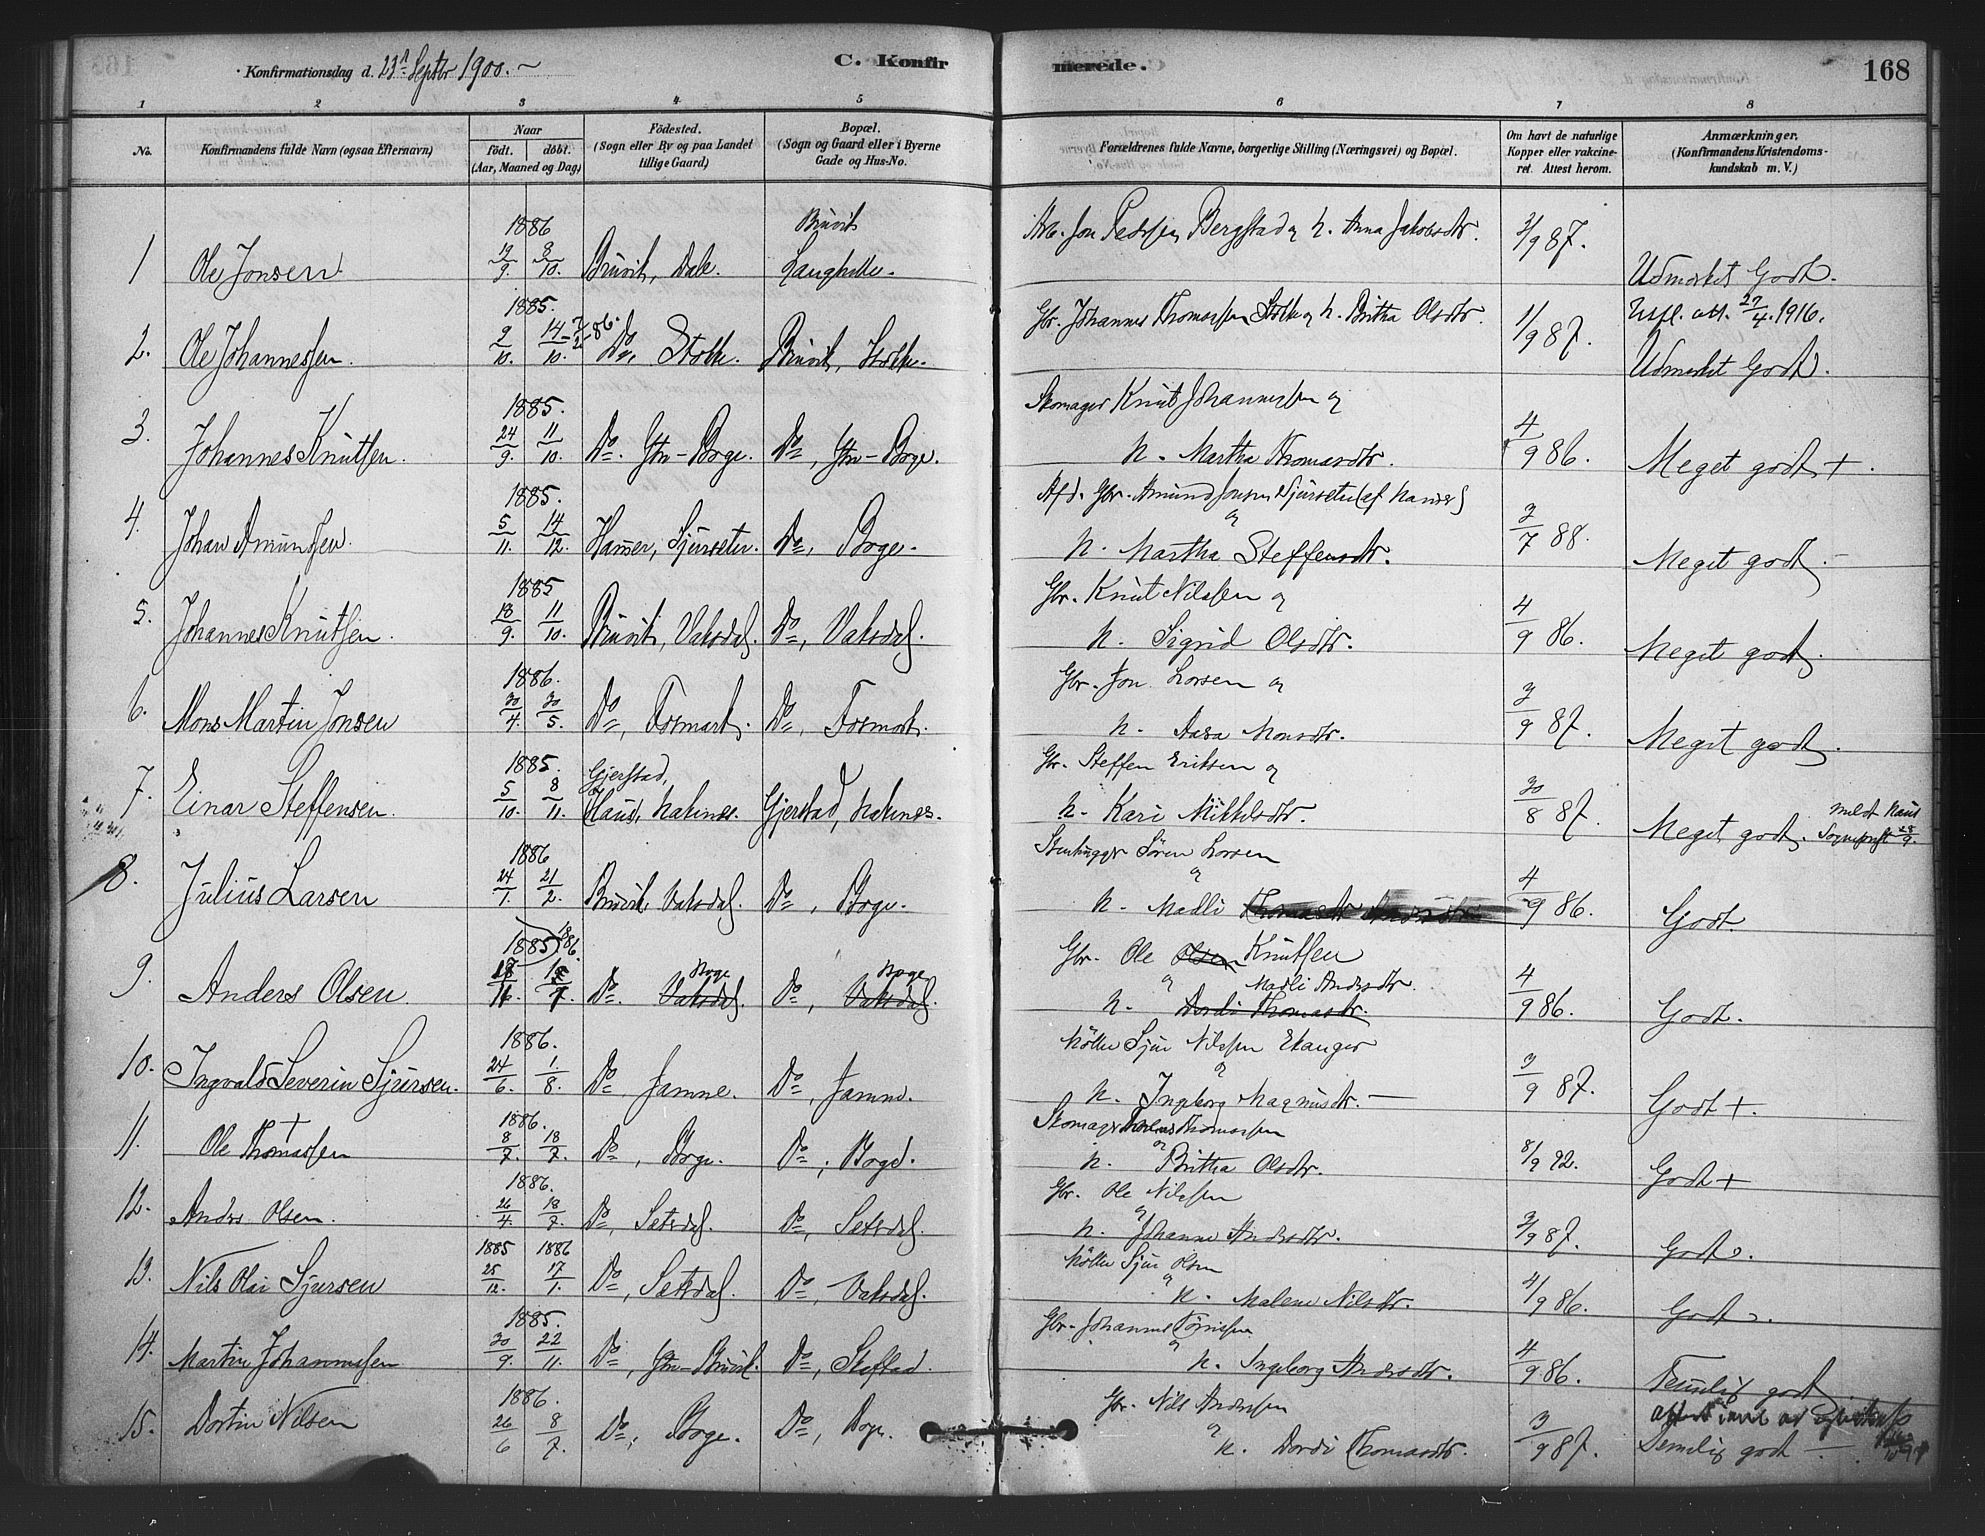 Konfirmationsdag d. 23de Septbr 1900.
C. Konfirmerede.
168
1 2 3 4 5 6 7 8
No.
Konfirmandens fulde Navn (ogsaa Efternavn)
Naar
födt. döbt.
(Aar, Maaned og Dag)
Födested.
(Sogn eller By og paa Landet
tillige Gaard)
Bopæl.
(Sogn og Gaard eller i Byerne
Gade og Hus-No.
Forældrenes fulde Navne, borgerlige Stilling (Næringsvei) og Bopæl.
Om havt de naturlige
Kopper eller vakcine-
ret. Attest herom.
Anmærkninger.
(Konfirmandens Kristendoms-
kundskab m. V.)
1886 Bruvik
1 Ole Jonsen 12/9 8/10. Bruvik, Dale. Langhelle. Arb. Jon Pedersen Bergstad og h. Anna Jakobsdtr. 2/9 87. Udmerket Godt.
1885. Utfl. att. 27/4 1916.
2. Ole Johannessen 2/10. 14/10. Do, Stokke. Bruvik, Stokke. Gbr. Johannes Thomassen Stokke og h. Britha Olsdtr. 1/9 87. Udmerket Godt.
1885. Skomager Knut Johannessen og
3. Johannes Knutsen. 24/9. 11/10. Do. Ytre-Boge. Do, Ytre-Boge. h. Martha Thomasdtr. 4/9 86. Meget godt +.
1885. Afd. Gbr. Amund Jonsen Sjurseter (af Hammer)
og
4. Johan Amundsen. 5/11. 14/12. Hamer, Sjurseter. Do, Boge. h. Martha Steffensdtr. 2/7 88. Meget godt.
1885 Gbr. Knut Nilssen og
5. Johannes Knutsen. 18/9. 11/10. Bruvik, Vaksdal. Do, Vaksdal. h. Sigrid Olsdtr. 4/9 86. Meget godt.
1886. Gbr. Jon Larsen og
6. Mons Martin Jonsen 30/4. 30/5. Do, Fosmark. Do, Fosmark. h. Aasa Monsdtr. 3/9 87. Meget godt.
1885. Gjerstad, Gbr. Steffen Eriksen og
7. Einar Steffensen. 5/10. 8/11. Haus, Hatenes. Gjerstad, Hatenes. h. Kari Mikkelsdtr. 30/8 87. Meget godt. meldt Haus Sogneprest 28/9.
1886 Stenhugger Sören Larsen
og
8. Julius Larsen 24/1. 21/2. Bruvik, Vaksdal. Do, Boge. h. Madli Thomasdtr 4/9 86. Godt.
1885 1886. Gbr. Ole Olsen Knutsen
Boge Boge og Madli Andersdtr.
9. Anders Olsen. Do. Vaksdal. Do, Vaksdal. h. Dordi Thomasdtr. 4/9 86. Godt.
1886. Möller Sjur Nilssen Ekanger
og
10. Ingvald Severin Sjursen. 24/6. 1./8. Do, Jamne. Do, Jamne. h. Ingeborg Magnusdtr. 3/9 87. Godt +.
1886. Skomager Thomassen
og
11. Ole Thomassen 8/7. 18/7. Do, Boge. Do, Boge. h. Britha Olsdtr. 8/9 92. Godt +
1886. Gbr. Ole Nilssen
og
12. Anders Olsen. 26/4. 18/7. Do, Setsdal. Do, Setsdal. h. Johanne Andersdtr. 3/9 87. Godt.
1885 1886 Möller Sjur Olsen
og
13. Nils Olai Sjursen 25/12. 17/1. Do, Setsdal. Do, Vaksdal. h. Malene Nilsdtr. 4/9 86. Godt.
1885. Gbr. Johannes
og
14. Martin Johannessen 30/9. 22/11. Do, Ytre-Bruvik. Do, Skeftad. h. Ingeborg Andersdtr. 4/9 86. Temelig godt
1886. Gbr. Nils Anderssen
og
15. Dortin Nilsen 26/6 8/7. Do, Boge. Do, Boge. h. Dordi Thomasdtr. 3/9 87. Temelig godt